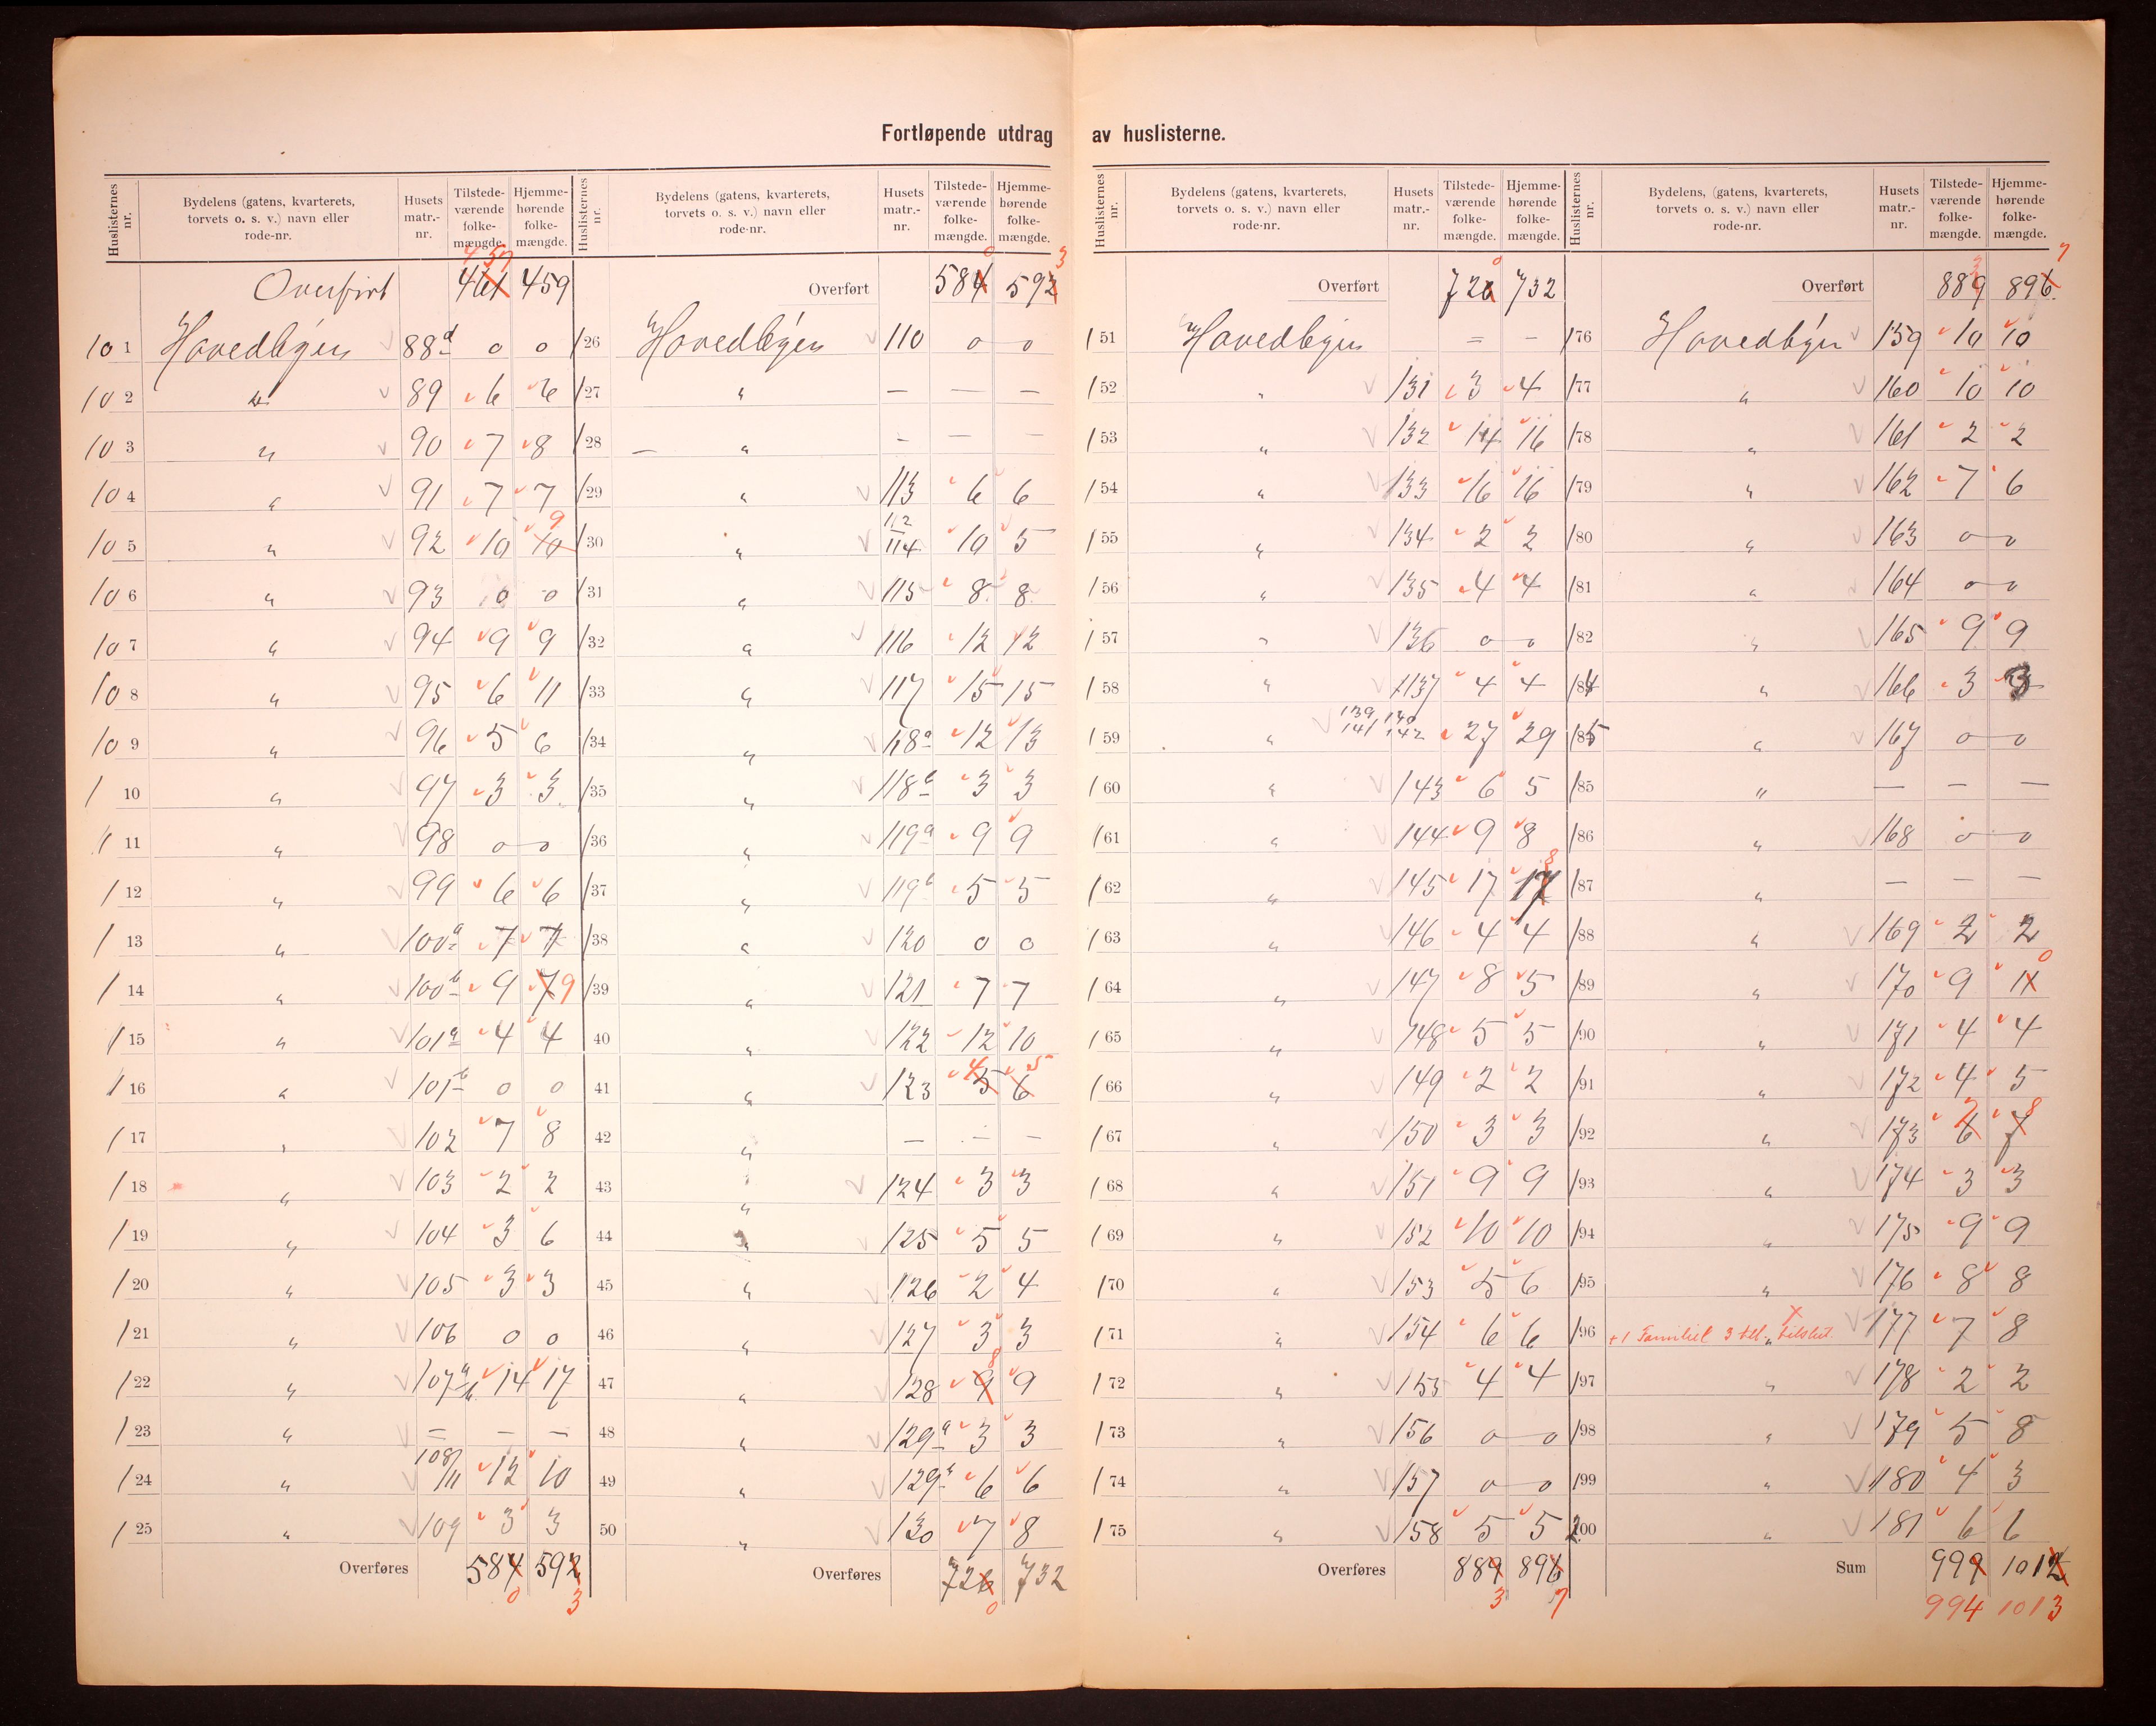 Fortløpende utdrag av huslisterne.
Huslisternes nr. | Bydelens (gatens, kvarterets, torvets o. s. v.) navn eller rode-nr. | Husets matr.-nr. | Tilstede-værende folke-mængde. | Hjemme-hørende folke-mængde.
Overført 461 457 459
101 Hovedbyen 88d 0 0
102 " 89 6 6
103 " 90 7 8
104 " 91 7 7
105 " 92 10 10 9
106 " 93 0 0
107 " 94 9 9
108 " 95 6 11
109 " 96 5 6
110 " 97 3 3
111 " 98 0 0
112 " 99 6 6
113 " 100a 7 7
114 " 100b 9 7 9
115 " 101a 4 4
116 " 101b 0 0
117 " 102 7 8
118 " 103 2 2
119 " 104 3 6
120 " 105 3 3
121 " 106 0 0
122 " 107a/b 14 17
123 " = — —
124 " 108/11 12 10
125 " 109 3 3
Overføres 584 592
0 3
Huslisternes nr. | Bydelens (gatens, kvarterets, torvets o. s. v.) navn eller rode-nr. | Husets matr.-nr. | Tilstede-værende folke-mængde. | Hjemme-hørende folke-mængde.
Overført 584 0 592 3
126 Hovedbyen 110 0 0
127 " — — —
128 " — — —
129 " 113 6 6
130 " 112 114 10 5
131 " 115 8 8
132 " 116 12 12
133 " 117 15 15
134 " 118a 12 13
135 " 118b 3 3
136 " 119a 9 9
137 " 119b 5 5
138 " 120 0 0
139 " 121 7 7
40 " 122 12 10
41 " 123 5 4 6 5
42 " — — —
43 " 124 3 3
44 " 125 5 5
45 " 126 2 4
46 " 127 3 3
47 " 128 9 8 9
48 " 129a 3 3
49 " 129b 6 6
50 " 130 7 8
Overføres 726 732
0
Huslisternes nr. | Bydelens (gatens, kvarterets, torvets o. s. v.) navn eller rode-nr. | Husets matr.-nr. | Tilstede-værende folke-mængde. | Hjemme-hørende folke-mængde.
Overført 726 0 732
151 Hovedbyen = —
152 " 131 3 4
153 " 132 14 16
154 " 133 16 16
155 " 134 2 2
156 " 135 4 4
157 " 136 0 0
158 " 137 4 4
159 " 139 140 141 142 27 29
160 " 143 6 5
161 " 144 9 8
162 " 145 17 17 8
163 " 146 4 4
164 " 147 8 5
165 " 148 5 5
166 " 149 2 2
167 " 150 3 3
168 " 151 9 9
169 " 152 10 10
170 " 153 5 6
171 " 154 6 6
172 " 155 4 4
173 " 156 0 0
174 " 157 0 0
175 " 158 5 5
Overføres 889 896
3 7
Huslisternes nr. | Bydelens, (gatens, kvarterets, torvets o. s. v.) navn eller rode-nr. | Husets matr.-nr. | Tilstede-værende folke-mængde. | Hjemme-hørende folke-mængde.
Overført 889 3 896 7
176 Hovedbyen 159 10 10
177 " 160 10 10
178 " 161 2 2
179 " 162 7 6
180 " 163 0 0
181 " 164 0 0
182 " 165 9 9
184 " 166 3 3
185 " 167 0 0
185 " — — —
186 " 168 0 0
187 " — — —
188 " 169 2 2
189 " 170 9 11 0
190 " 171 4 4
191 " 172 4 5
192 " 173 6 7 7 8
193 " 174 3 3
194 " 175 9 9
195 " 176 8 8
196 +1 Familiel 3 " 177 7 8
197 " 178 2 2
198 " 179 5 8
199 " 180 4 3
200 " 181 6 6
Sum 999 1012
994 1013